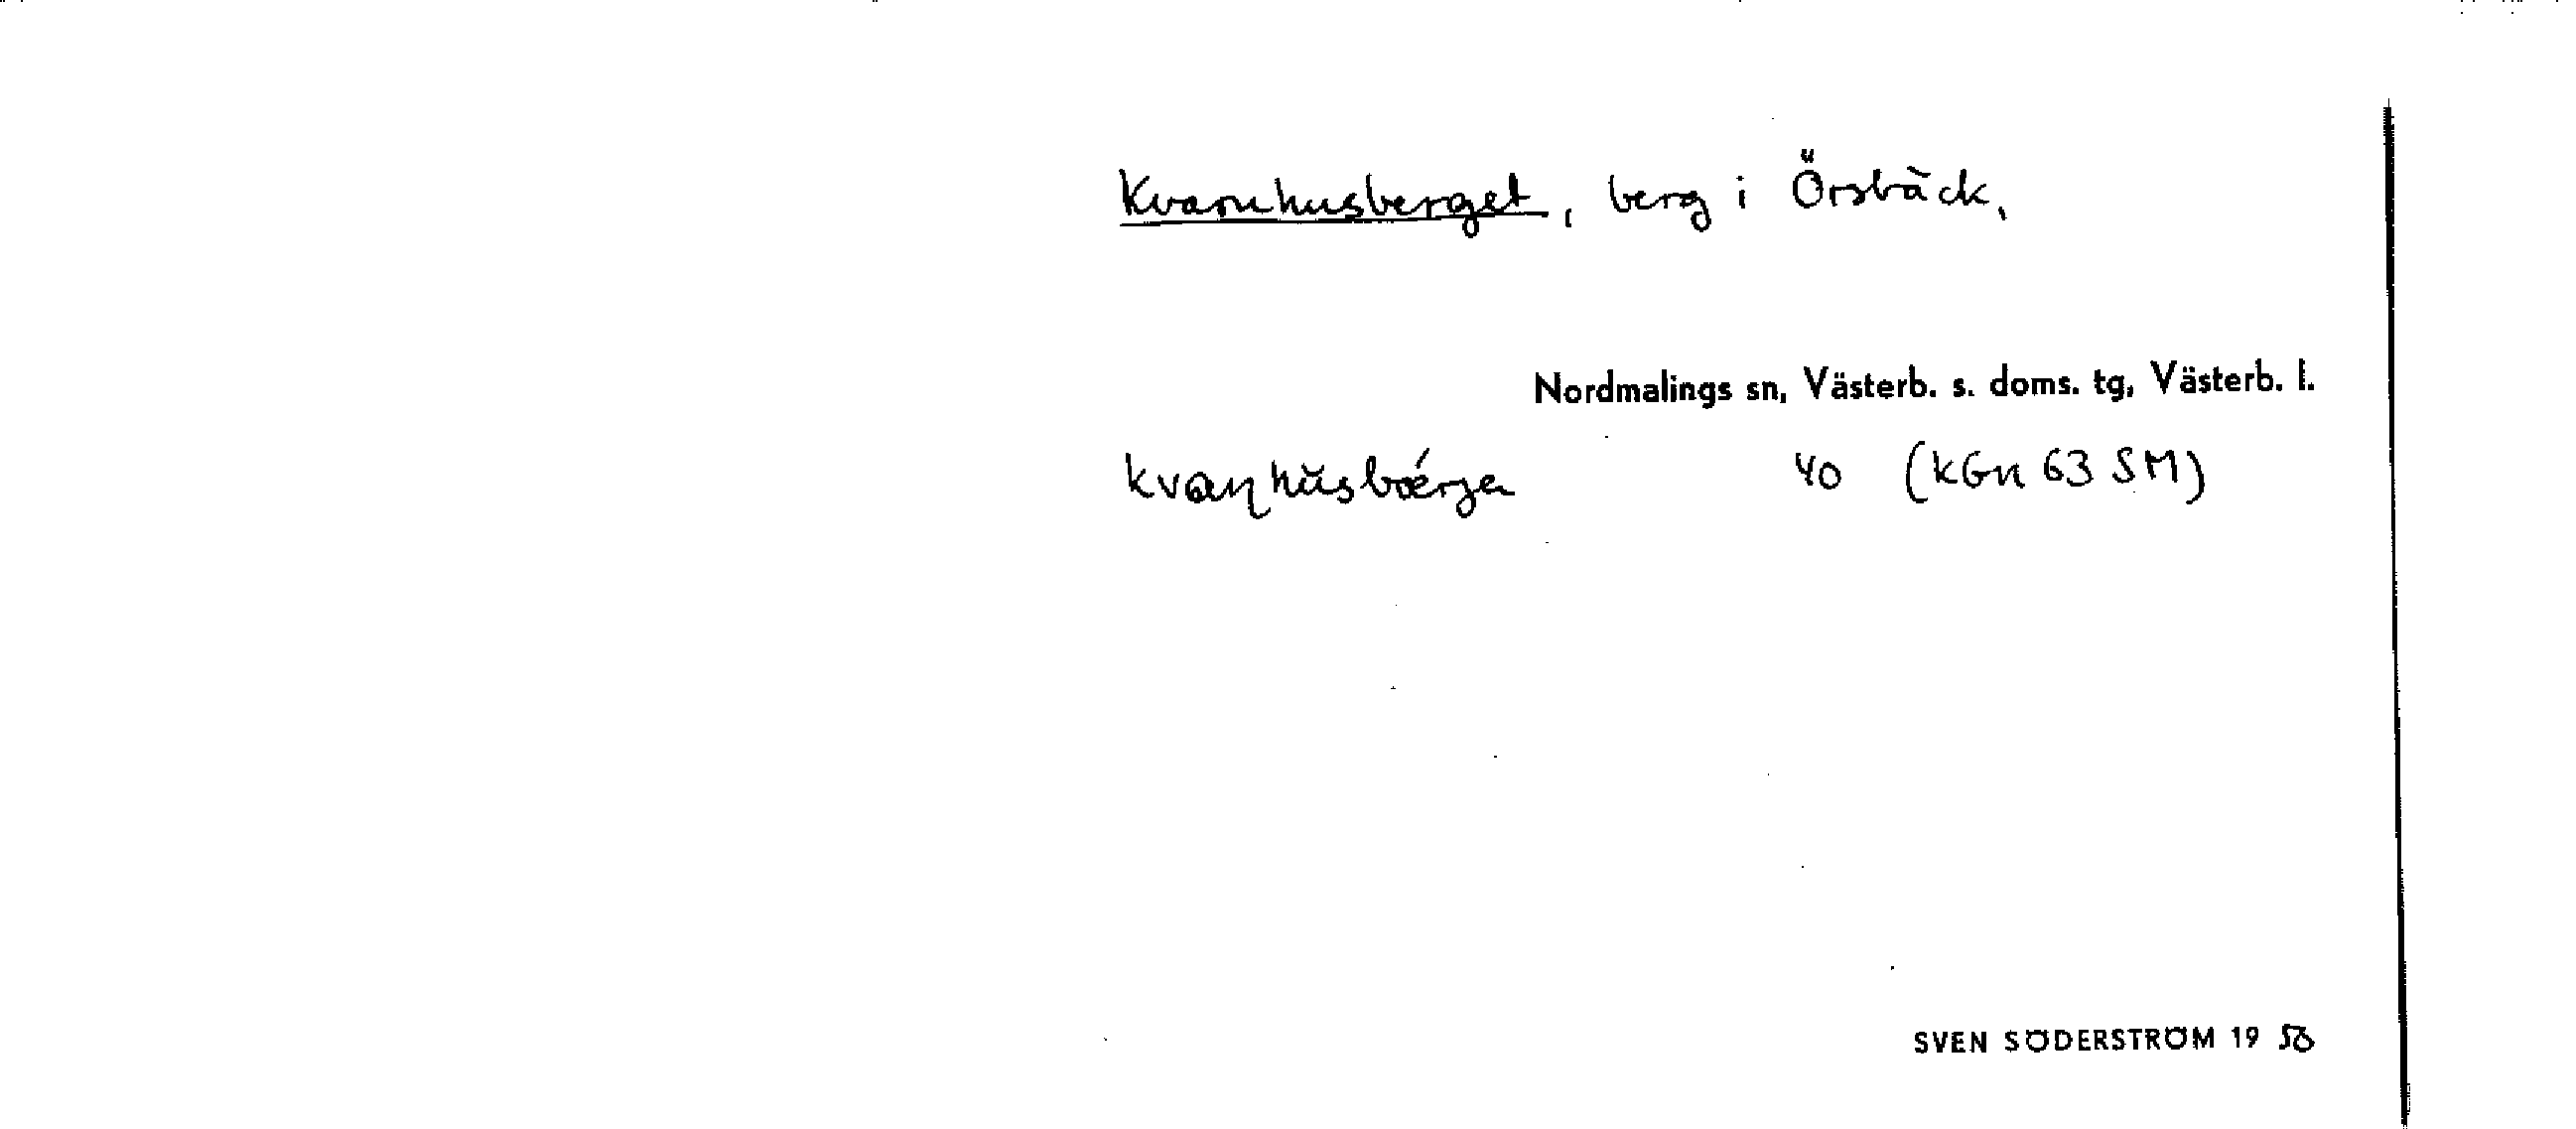 Kvarnhusberget, berg i Örsbäck,
Nordmalings sn, Västerb. s. doms. tg, Västerb. l.
40 (KGn 63 SM)
SVEN SÖDERSTRÖM 19 58